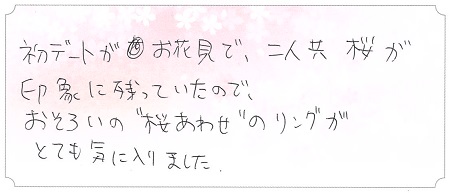 初デートがお花見で、二人共 桜が
印象に残っていたので、
おそろいの"桜あわせ"のリングが
とても気に入りました.